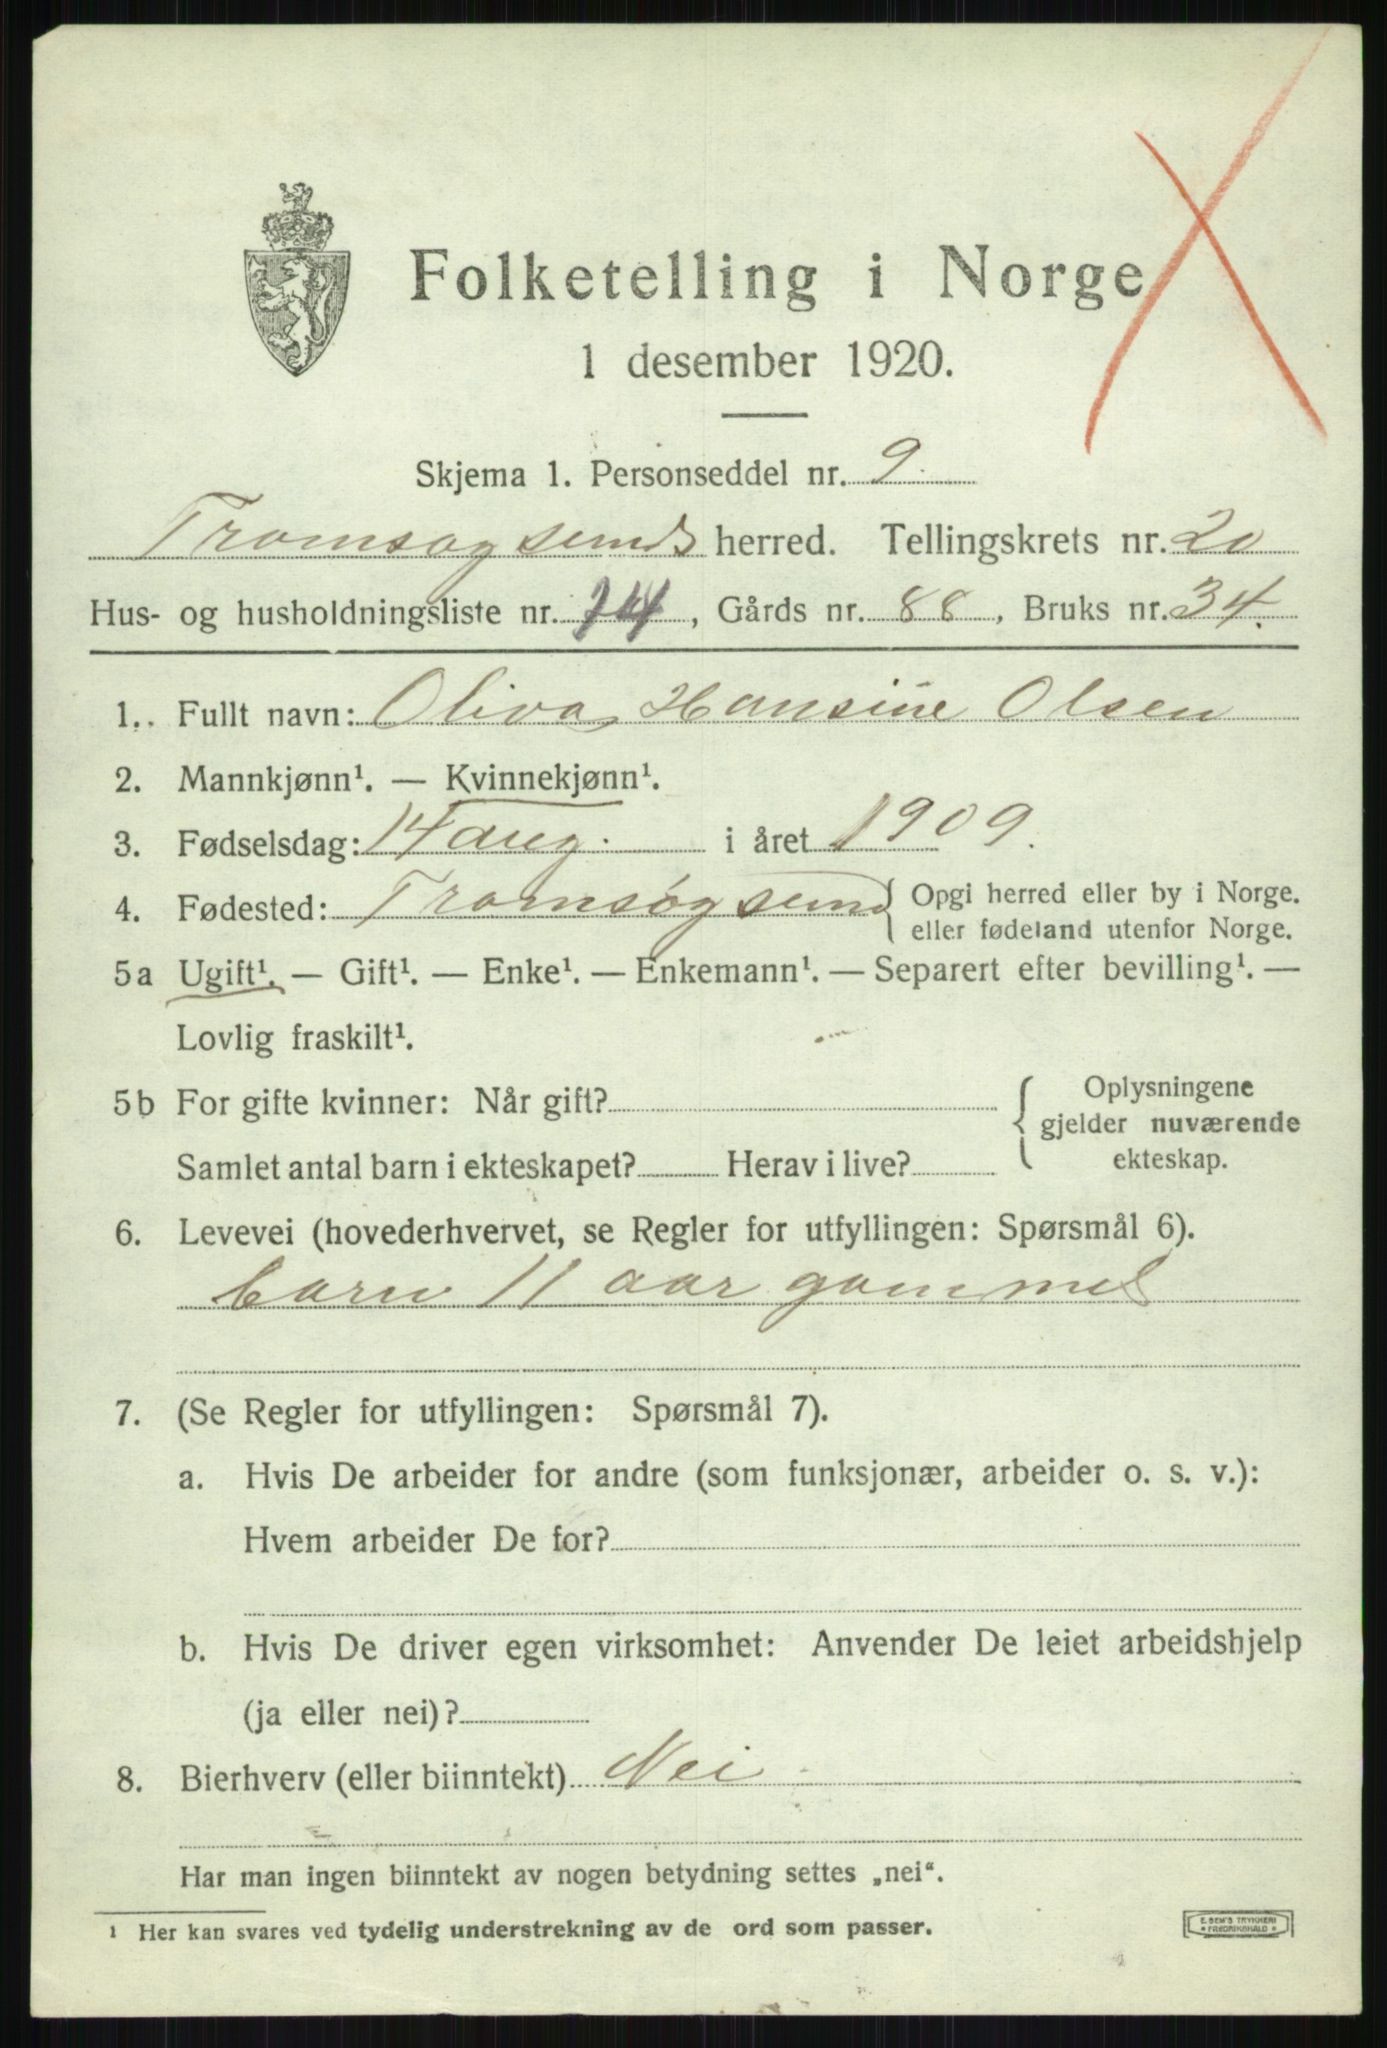 Folketelling i Norge
1 desember 1920.
Skjema 1. Personseddel nr. 9.
Tromsøysund herred. Tellingskrets nr. 20
Hus- og husholdningsliste nr. 74, Gårds nr. 88, Bruks nr. 34.
1. Fullt navn: Oliva Hansine Olsen
2. Mannkjønn¹. — Kvinnekjønn¹.
3. Fødselsdag: 14 aug. i året 1909.
4. Fødested: Tromsøysund { Opgi herred eller by i Norge.
eller fødeland utenfor Norge.
5a Ugift¹. — Gift¹. — Enke¹. — Enkemann¹. — Separert efter bevilling¹. —
Lovlig fraskilt¹.
5b For gifte kvinner: Når gift? { Oplysningene
gjelder nuværende
Samlet antal barn i ekteskapet? Herav i live? ekteskap.
6. Levevei (hovederhvervet, se Regler for utfyllingen: Spørsmål 6).
barn 11 aar gammel
7. (Se Regler for utfyllingen: Spørsmål 7).
a. Hvis De arbeider for andre (som funksjonær, arbeider o. s. v.):
Hvem arbeider De for?
b. Hvis De driver egen virksomhet: Anvender De leiet arbeidshjelp
(ja eller nei)?
8. Bierhverv (eller biinntekt) Nei
Har man ingen biinntekt av nogen betydning settes „nei“.
¹ Her kan svares ved tydelig understrekning av de ord som passer.
E. SEM'S TRYKKERI
FREDRIKSHALD